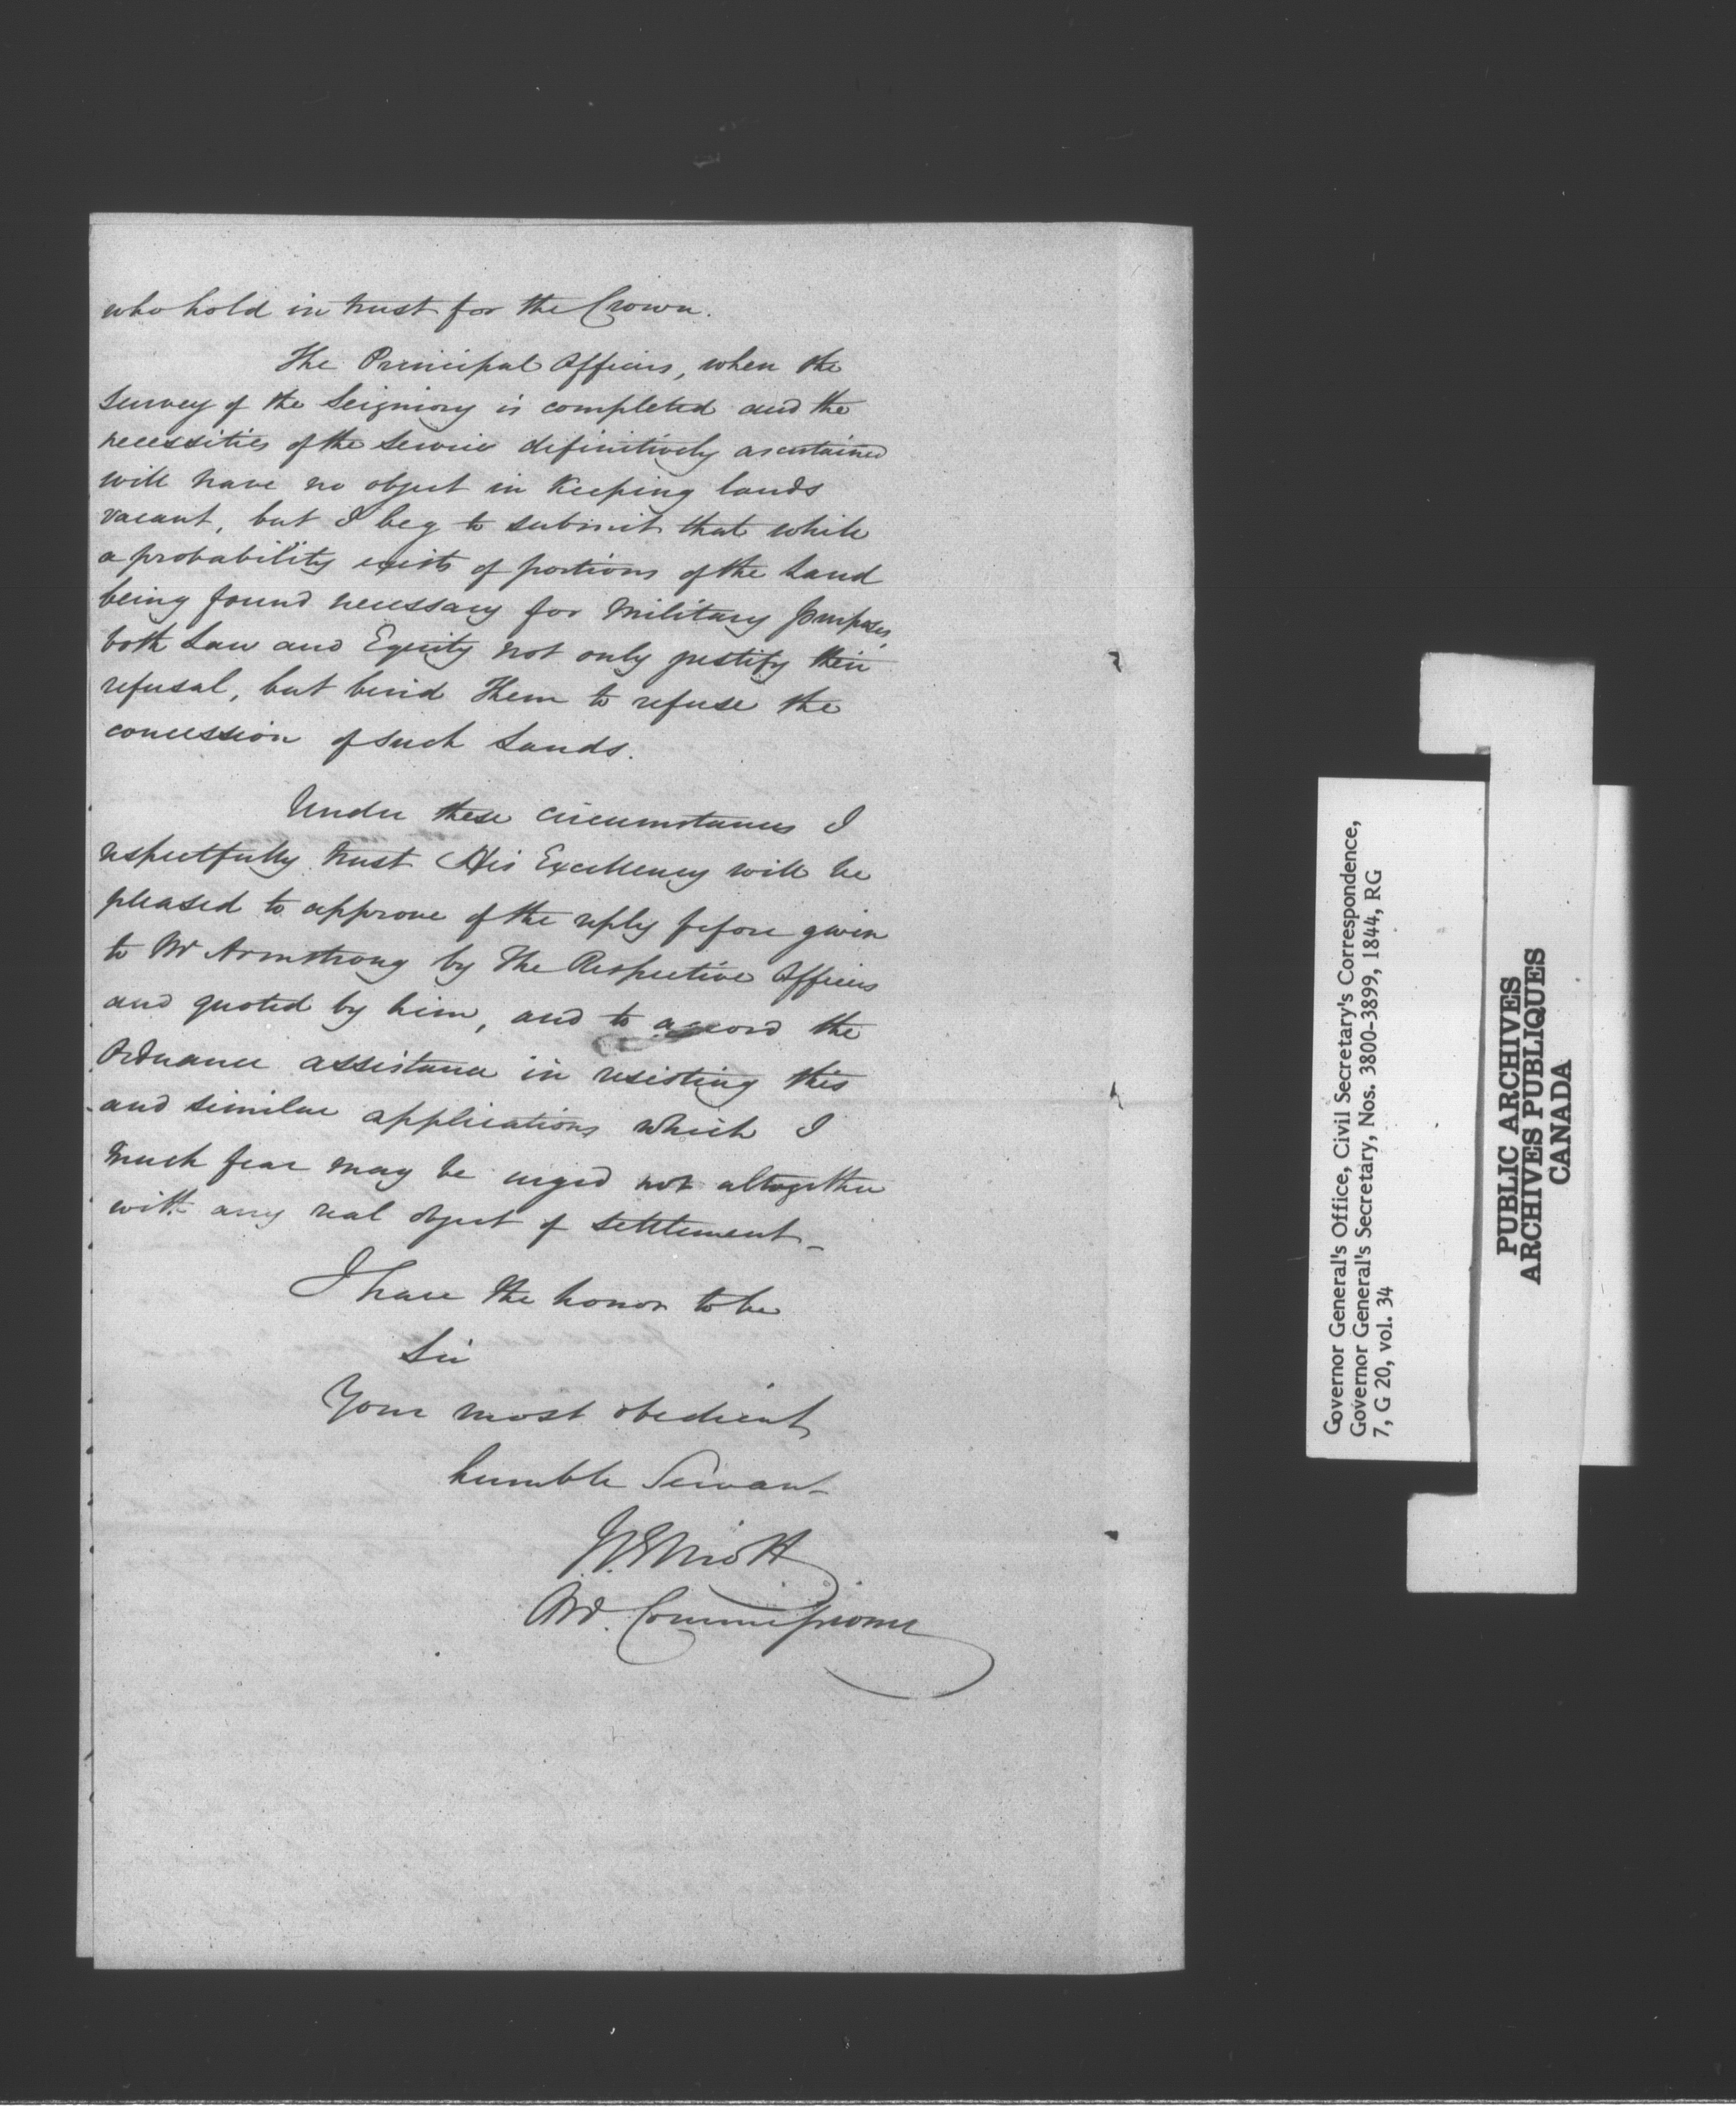 who hold in trust for the Crown.
The Principal Officers, when the
Survey of the Seigniory is completed and the
necessities of the Service definitively ascertained
will have no object in Keeping lands
vacant, but I beg to submit that while
a probability exists of portions of the Land
being found necessary for Military purposes,
both Law and Equity not only justify their
refusal, but bind Them to refuse the
concession of such Lands.
Under these circumstances I
respectfully trust His Excellency will be
pleased to approve of the reply before given
to Mr Armstrong by The Respective Officers
and quoted by him, and to accord the
Ordnance assistance in resisting this
and similar applications which I
much fear may be urged not altogether
with any real object of settlement_
I have the honor to be
Sir
Your most obedient
humble Servant
Ord. Commissioner
Governor General's Office, Civil Secretary's Correspondence,
Governor General's Secretary, Nos. 3800-3899, 1844, RG
7, G 20, vol. 34
PUBLIC ARCHIVES
ARCHIVES PUBLIQUES
CANADA